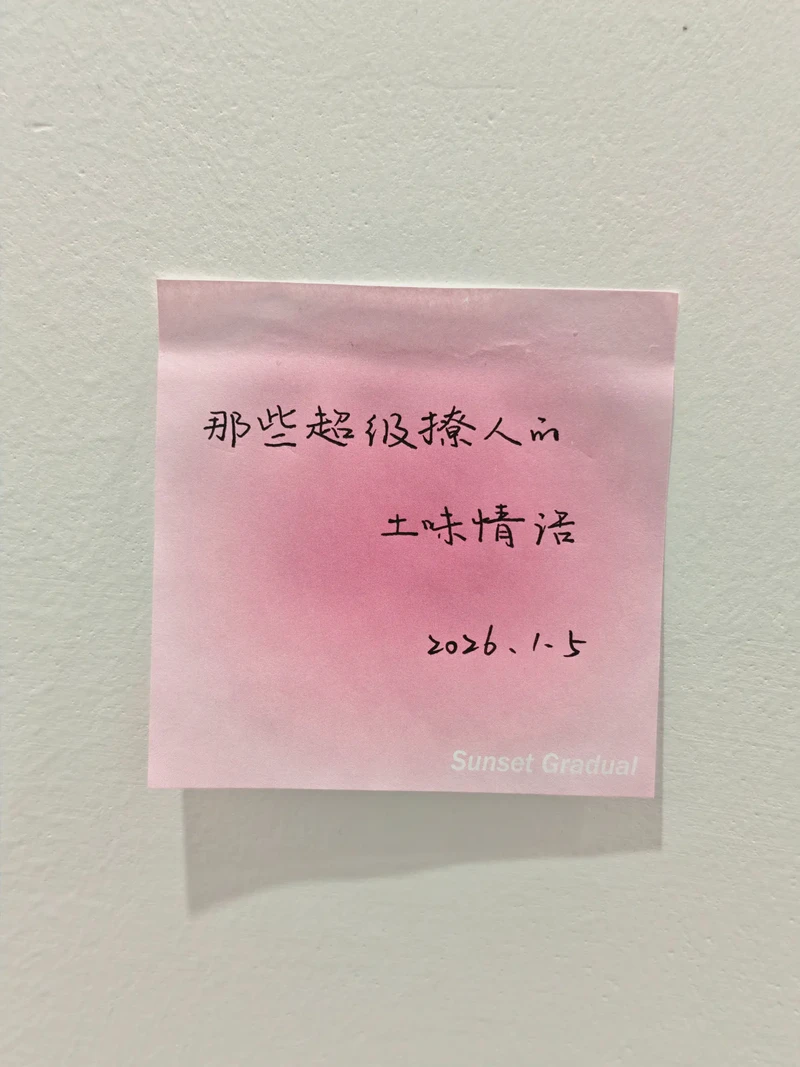 那些超级撩人的
土味情话
2026、1.5
Sunset Gradual